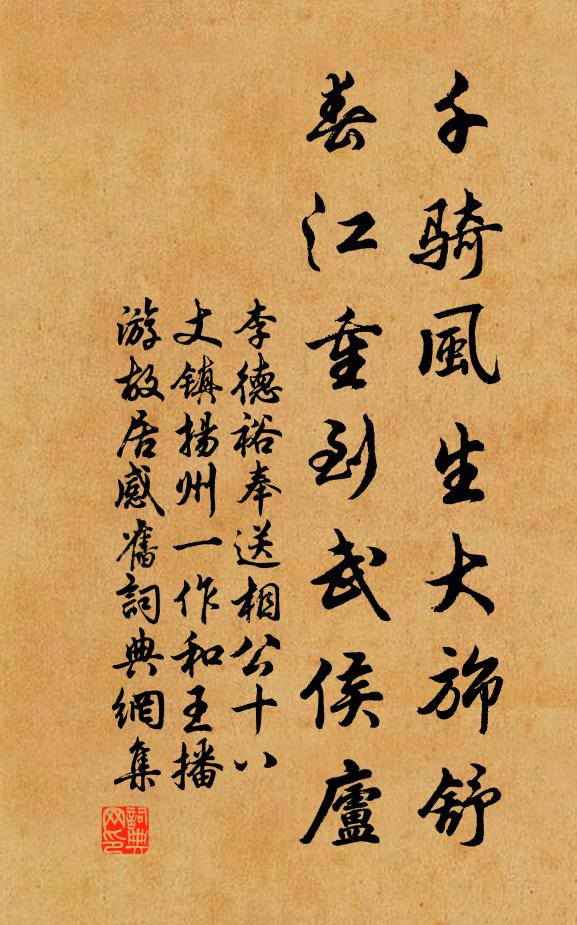 千騎風生大旆舒
春江重到武侯廬
李德裕奉送相公十八
丈鎮揚州一作和王播
游故居感舊詞典網集
詞典
网印